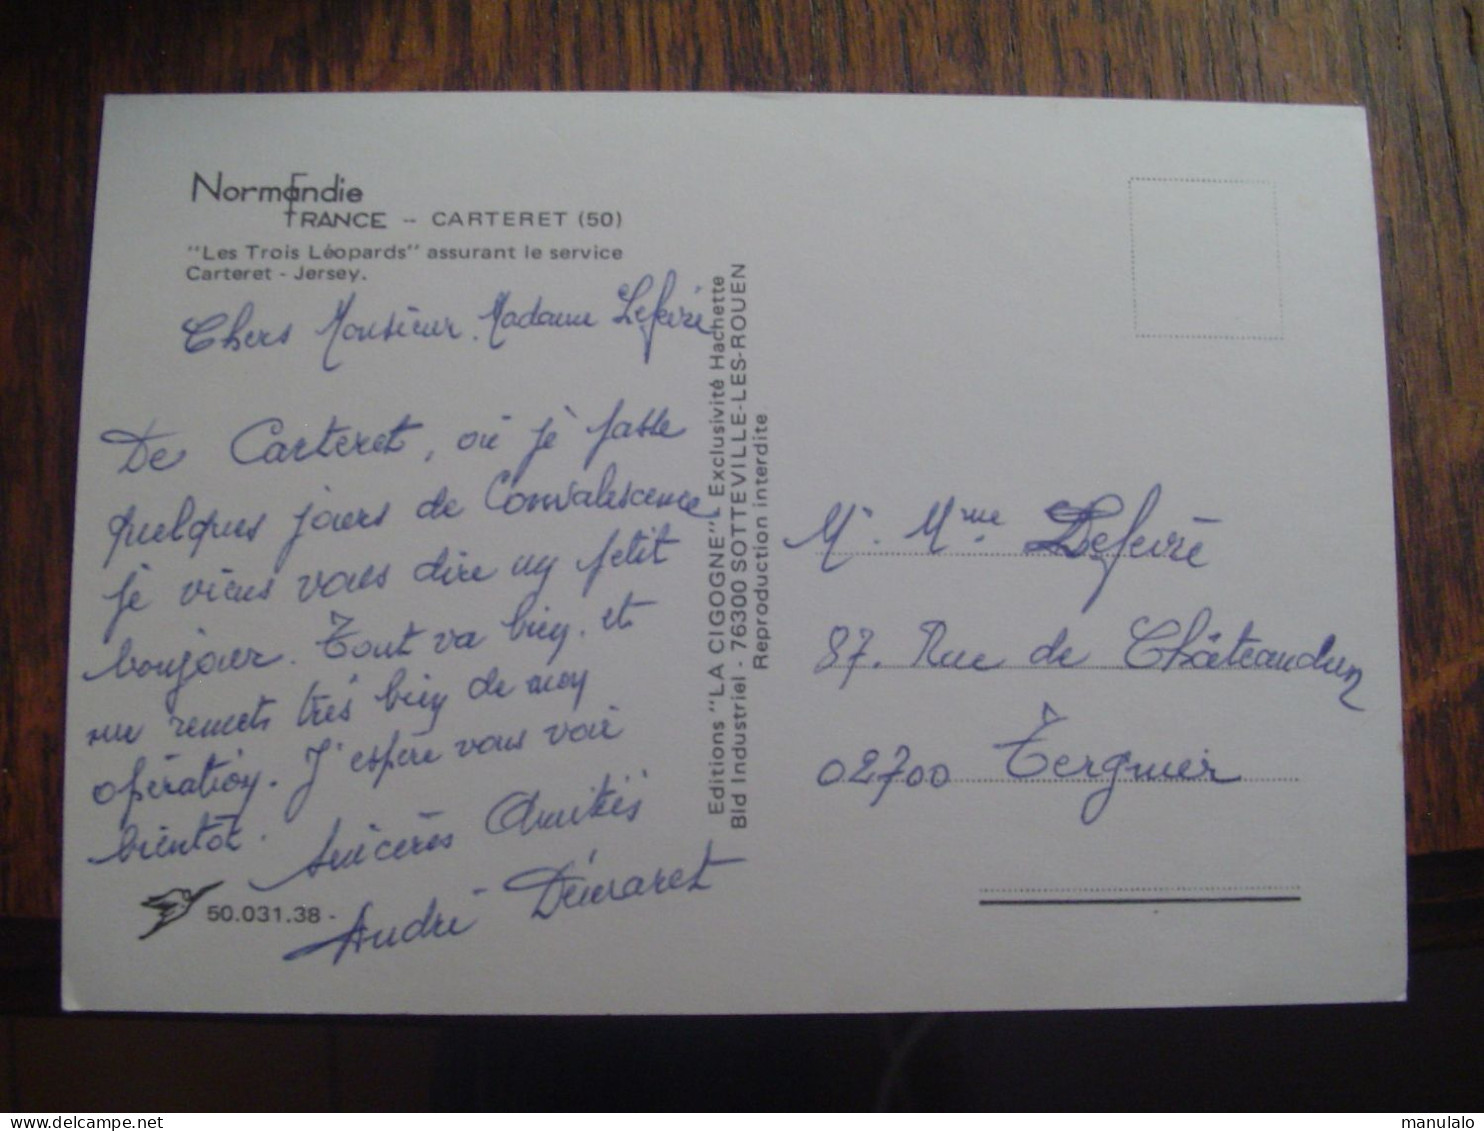 Normandie
FRANCE -- CARTERET (50)
"Les Trois Léopards" assurant le service
Carteret - Jersey.
Chers Monsieur. Madame Lefevre
De Carteret, où je passe
quelques jours de Convalescence
je viens vous dire un petit
bonjour. Tout va bien. et
me remets très bien de mon
opération. J'espère vous voir
bientôt.
Sincères Amitiés
André Démaret
50.031.38 -
Editions "LA CIGOGNE" Exclusivité Hachette
Bld Industriel - 76300 SOTTEVILLE-LES-ROUEN
Reproduction interdite
Mr. Mme. Lefevre
87. Rue de Châteaudun
02700 Tergnier
www.delcampe.net
manulalo